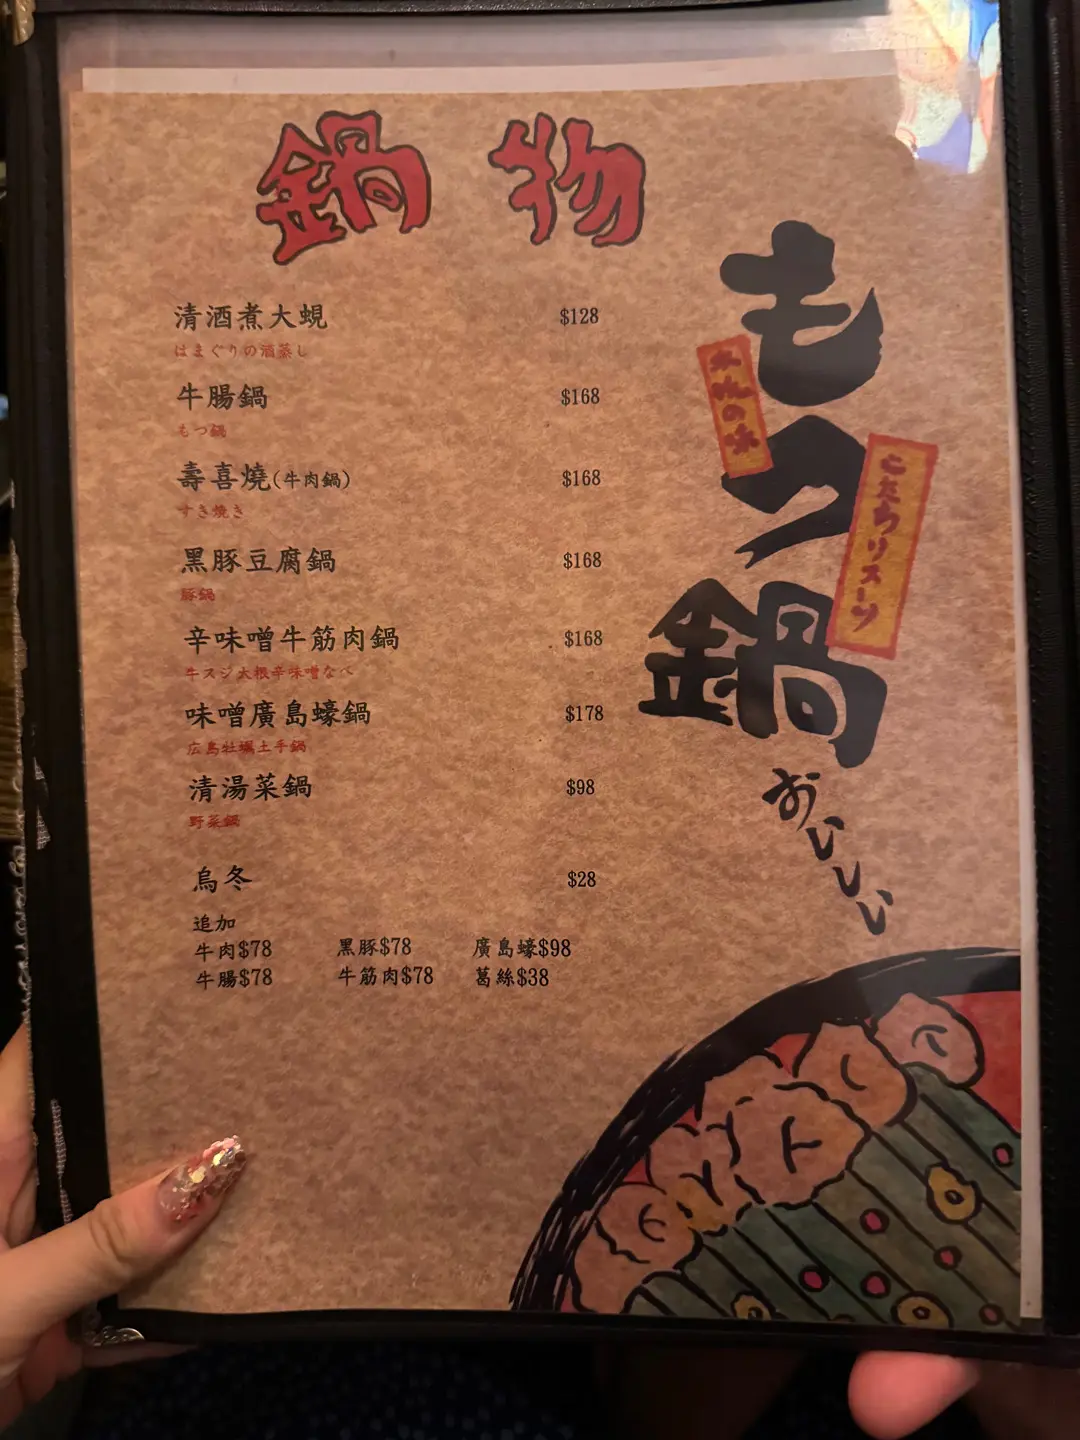 鍋物
清酒煮大蜆 $128
はまぐりの酒蒸し
牛腸鍋 $168
もつ鍋
壽喜燒(牛肉鍋) $168
すき焼き
黑豚豆腐鍋 $168
豚鍋
辛味噌牛筋肉鍋 $168
牛スジ大根辛味噌なべ
味噌廣島蠔鍋 $178
広島牡蠣土手鍋
清湯菜鍋 $98
野菜鍋
烏冬 $28
追加
牛肉$78 黑豚$78 廣島蠔$98
牛腸$78 牛筋肉$78 葛絲$38
もつ鍋
の味
おいしい